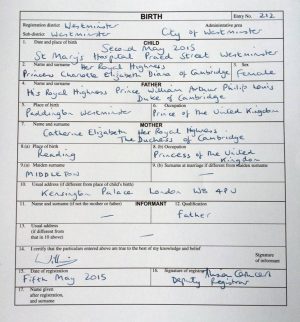 BIRTH Entry No. 212
Registration district Westminster Administrative area
Sub-district Westminster City of Westminster
1. Date and place of birth CHILD
Second May 2015
St Mary's Hospital Praed Street Westminster
2. Name and surname Her Royal Highness 3. Sex
Princess Charlotte Elizabeth Diana of Cambridge Female
4. Name and surname FATHER
His Royal Highness Prince William Arthur Philip Louis
Duke of Cambridge
5. Place of birth 6. Occupation
Paddington Westminster Prince of the United Kingdom
7. Name and surname MOTHER
Catherine Elizabeth Her Royal Highness
The Duchess of Cambridge
8.(a) Place of birth 8.(b) Occupation
Reading Princess of the United
Kingdom
9.(a) Maiden surname 9.(b) Surname at marriage if different from maiden surname
MIDDLETON
10. Usual address (if different from place of child's birth)
Kensington Palace London W8 4PU
11. Name and surname (if not the mother or father) INFORMANT 12. Qualification
Father
13. Usual address
(if different from
that in 10 above)
14. I certify that the particulars entered above are true to the best of my knowledge and belief
Signature
of informant
15. Date of registration 16. Signature of registrar
Fifth May 2015 Deputy Registrar
17. Name given
after registration,
and surname